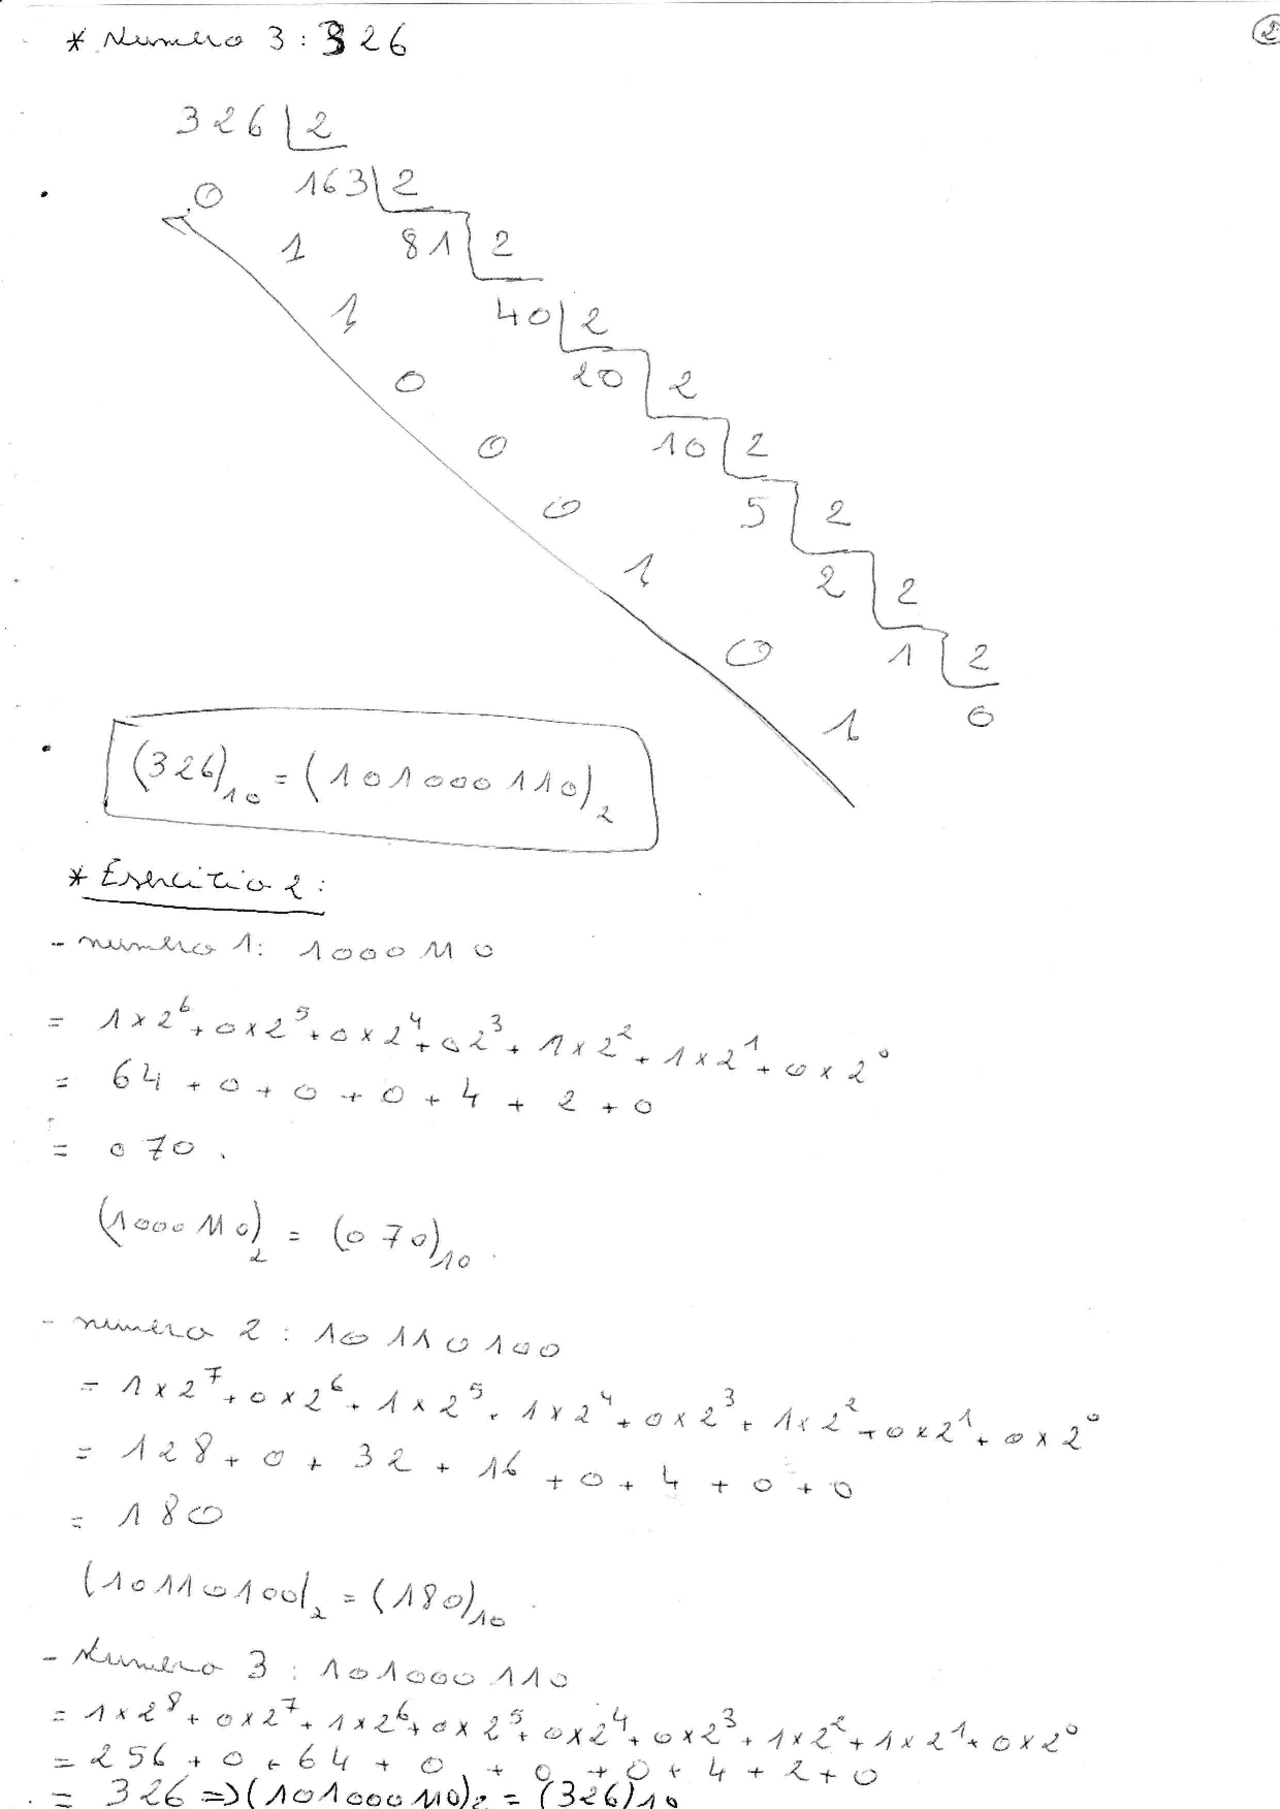 * Numero 3 : 326
2
326 2
0 163 2
1 81 2
1 40 2
0 20 2
0 10 2
0 5 2
1 2 2
0 1 2
1 0
(326)10 = (101000110)2
* Esercitio 2 :
- numero 1 : 1000110
= 1×2^6 + 0×2^5 + 0×2^4 + 02^3 + 1×2^2 + 1×2^1 + 0×2^0
= 64 + 0 + 0 + 0 + 4 + 2 + 0
= 070 .
(1000110)2 = (070)10 .
- numero 2 : 10110100
= 1×2^7 + 0×2^6 + 1×2^5 + 1×2^4 + 0×2^3 + 1×2^2 + 0×2^1 + 0×2^0
= 128 + 0 + 32 + 16 + 0 + 4 + 0 + 0
= 180
(10110100)2 = (180)10 .
- Numero 3 : 101000110
= 1×2^8 + 0×2^7 + 1×2^6 + 0×2^5 + 0×2^4 + 0×2^3 + 1×2^2 + 1×2^1 + 0×2^0
= 256 + 0 + 64 + 0 + 0 + 0 + 4 + 2 + 0
= 326 => (101000110)2 = (326)10